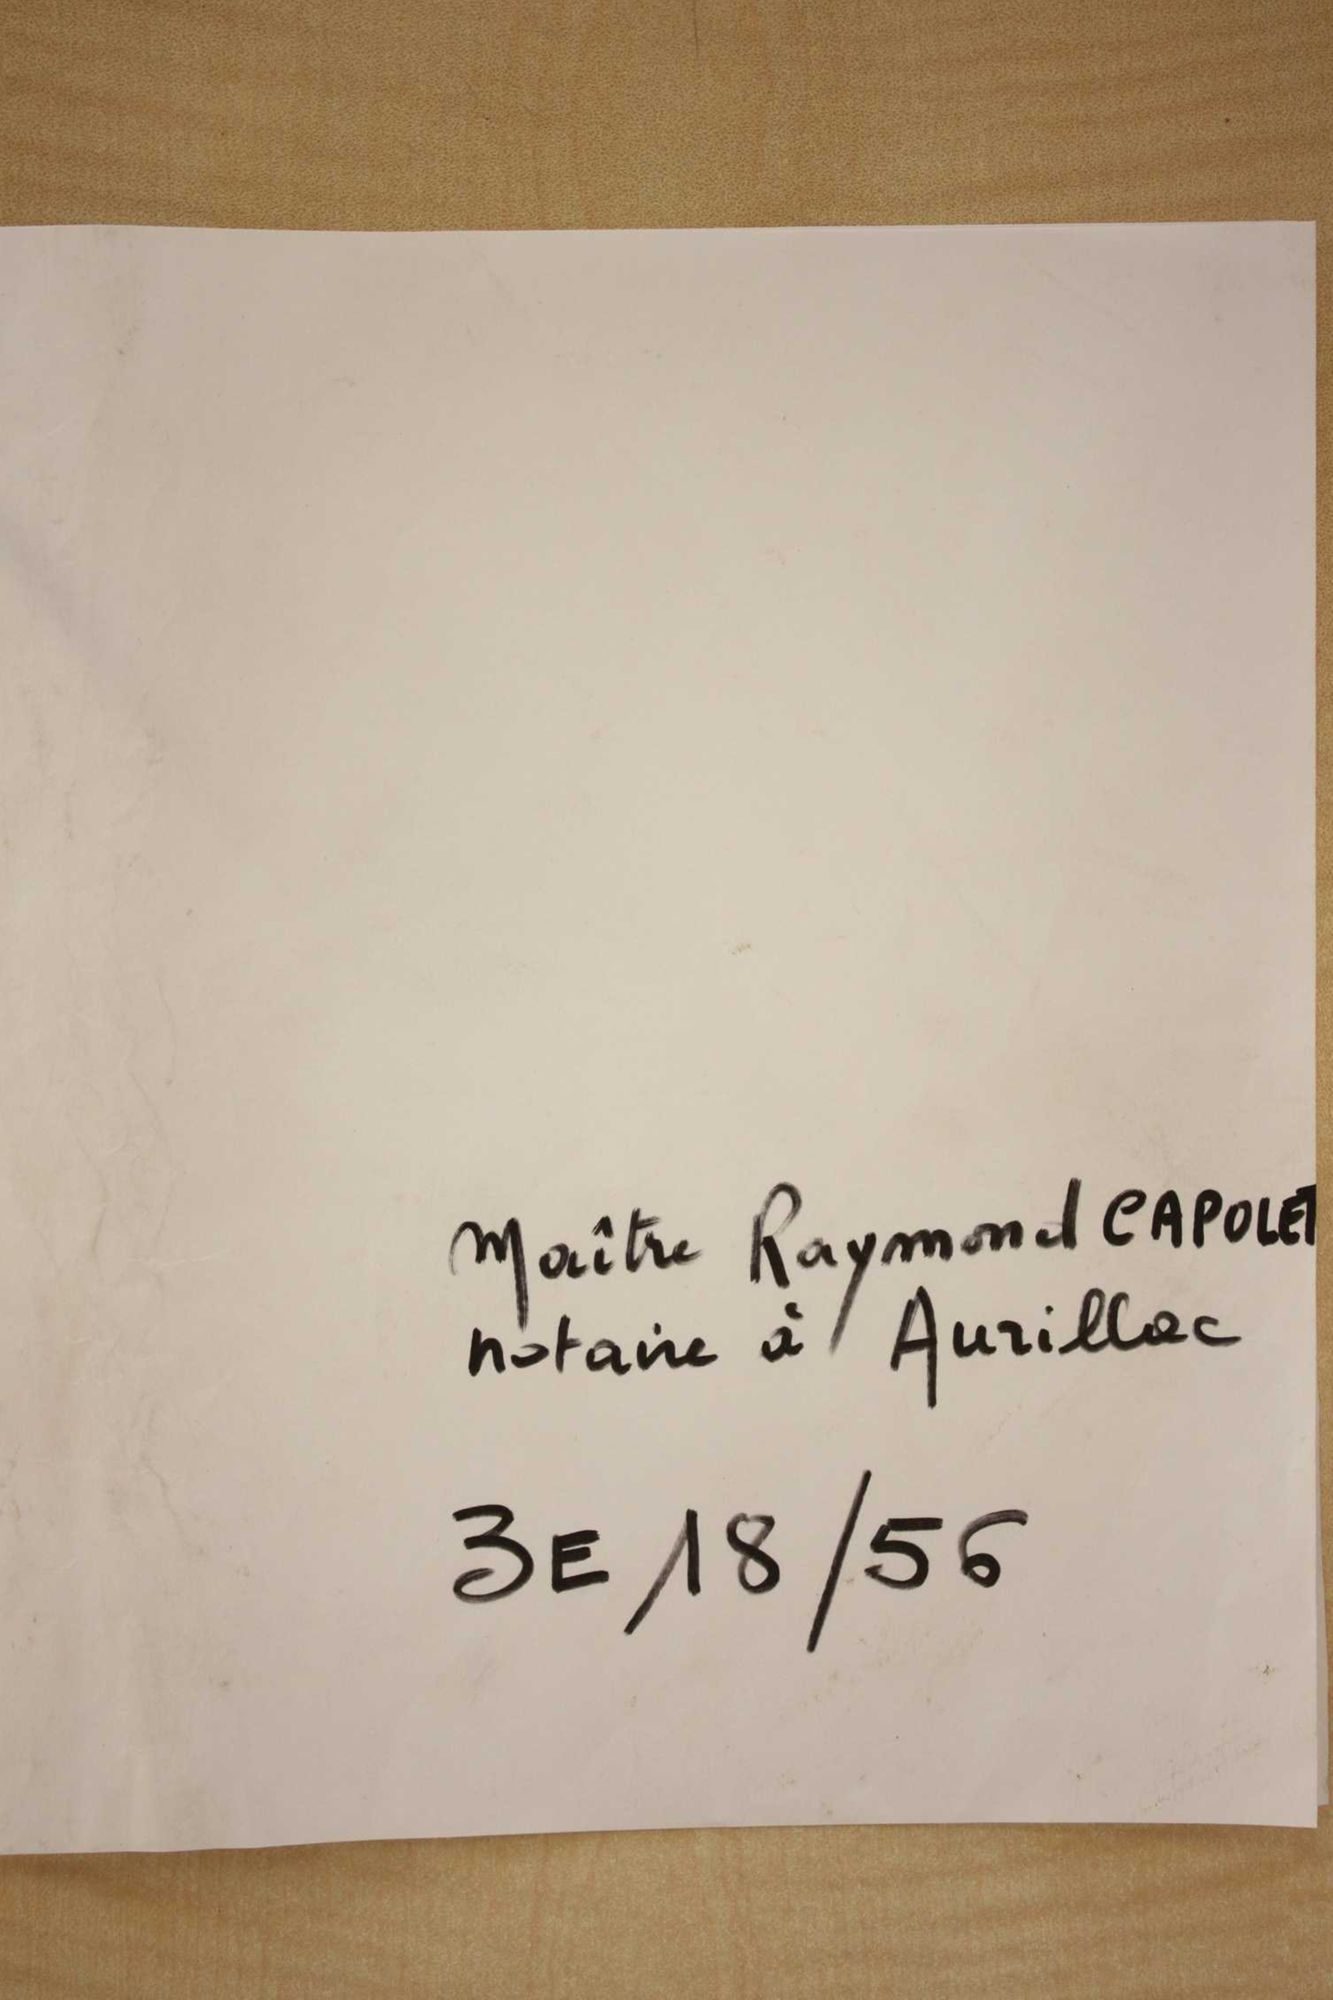 Maître Raymond CAPOLET
notaire à Aurillac
3E/18/56